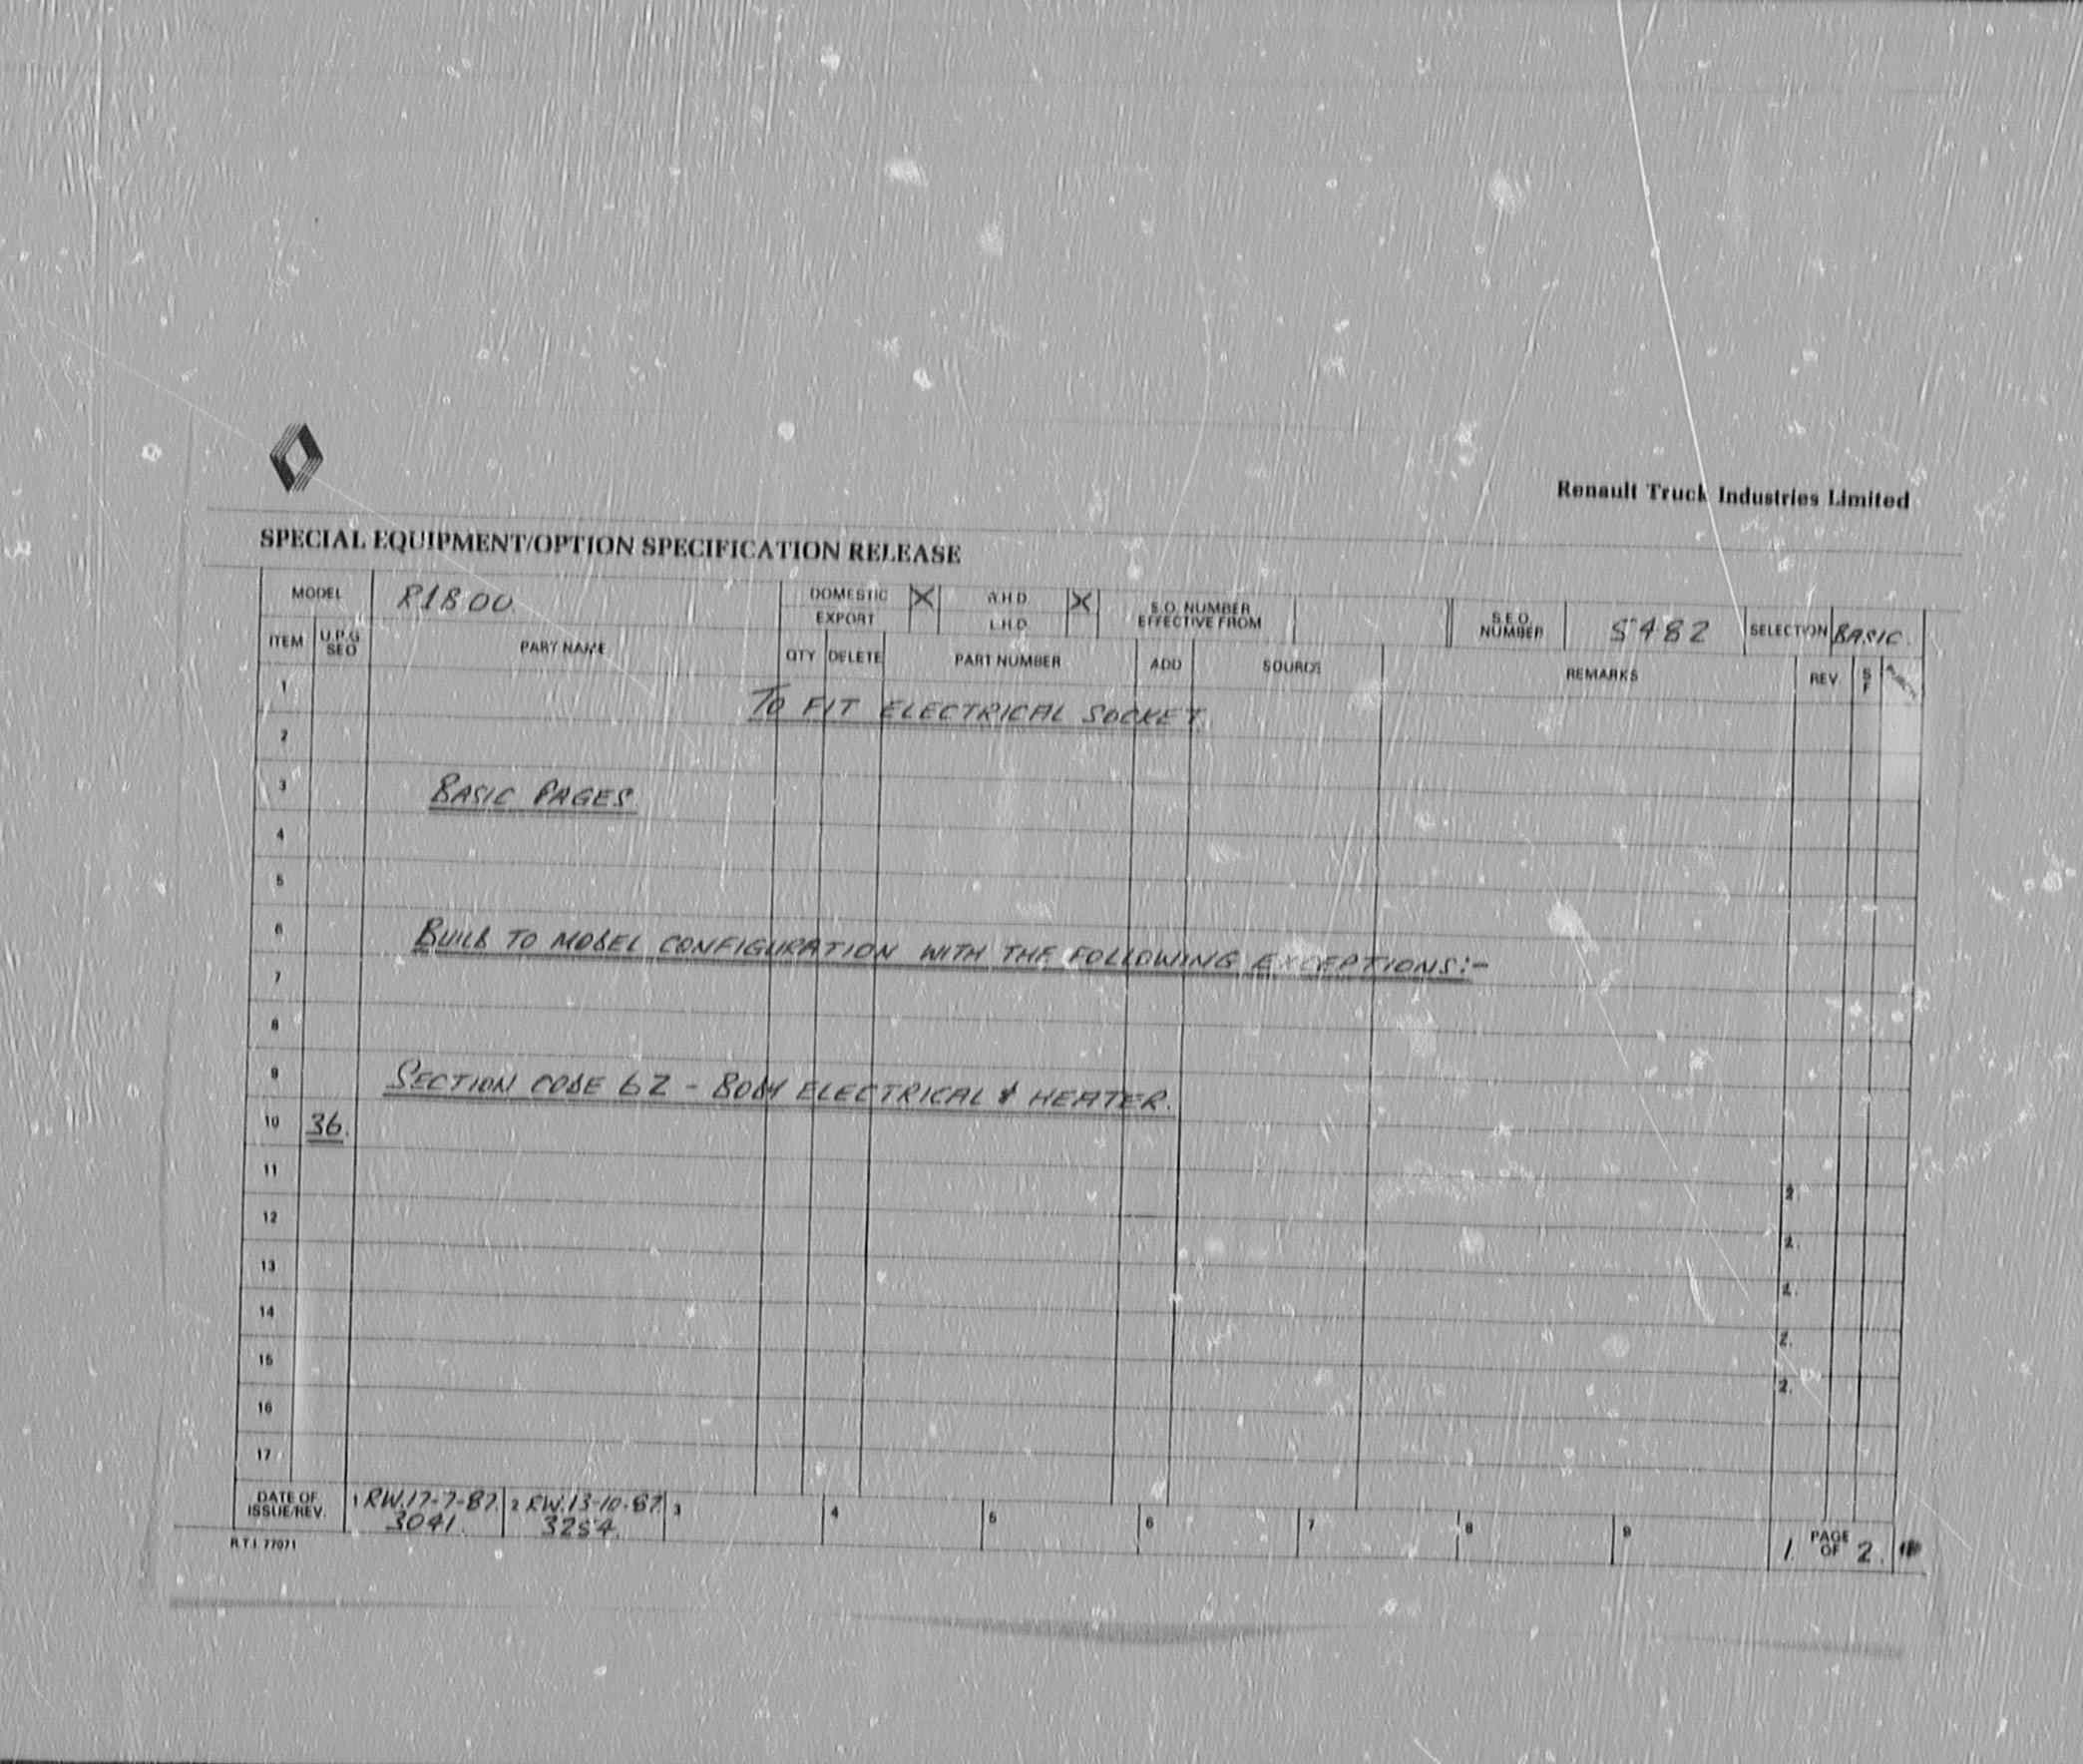 Renault Truck Industries Limited
SPECIAL EQUIPMENT/OPTION SPECIFICATION RELEASE
MODEL R1800 DOMESTIC X R.H.D. X S.O. NUMBER EFFECTIVE FROM S.E.O. NUMBER S482 SELECTION BASIC.
EXPORT L.H.D.
ITEM U.P.G SEO PART NAME QTY DELETE PART NUMBER ADD SOURCE REMARKS REV S F
1 TO FIT ELECTRICAL SOCKET.
2
3 BASIC PAGES
4
5
6 BUILD TO MODEL CONFIGURATION WITH THE FOLLOWING EXCEPTIONS:-
7
8
9 SECTION CODE 62 - BODY ELECTRICAL & HEATER.
10 36.
11 2
12 2.
13 2.
14 2.
15 2.
16
17
DATE OF ISSUE/REV. 1 RW.17-7-87. 3041. 2 RW.13-10-87. 3254. 3 4 5 6 7 8 9 1. PAGE OF 2.
R.T.I. 77071